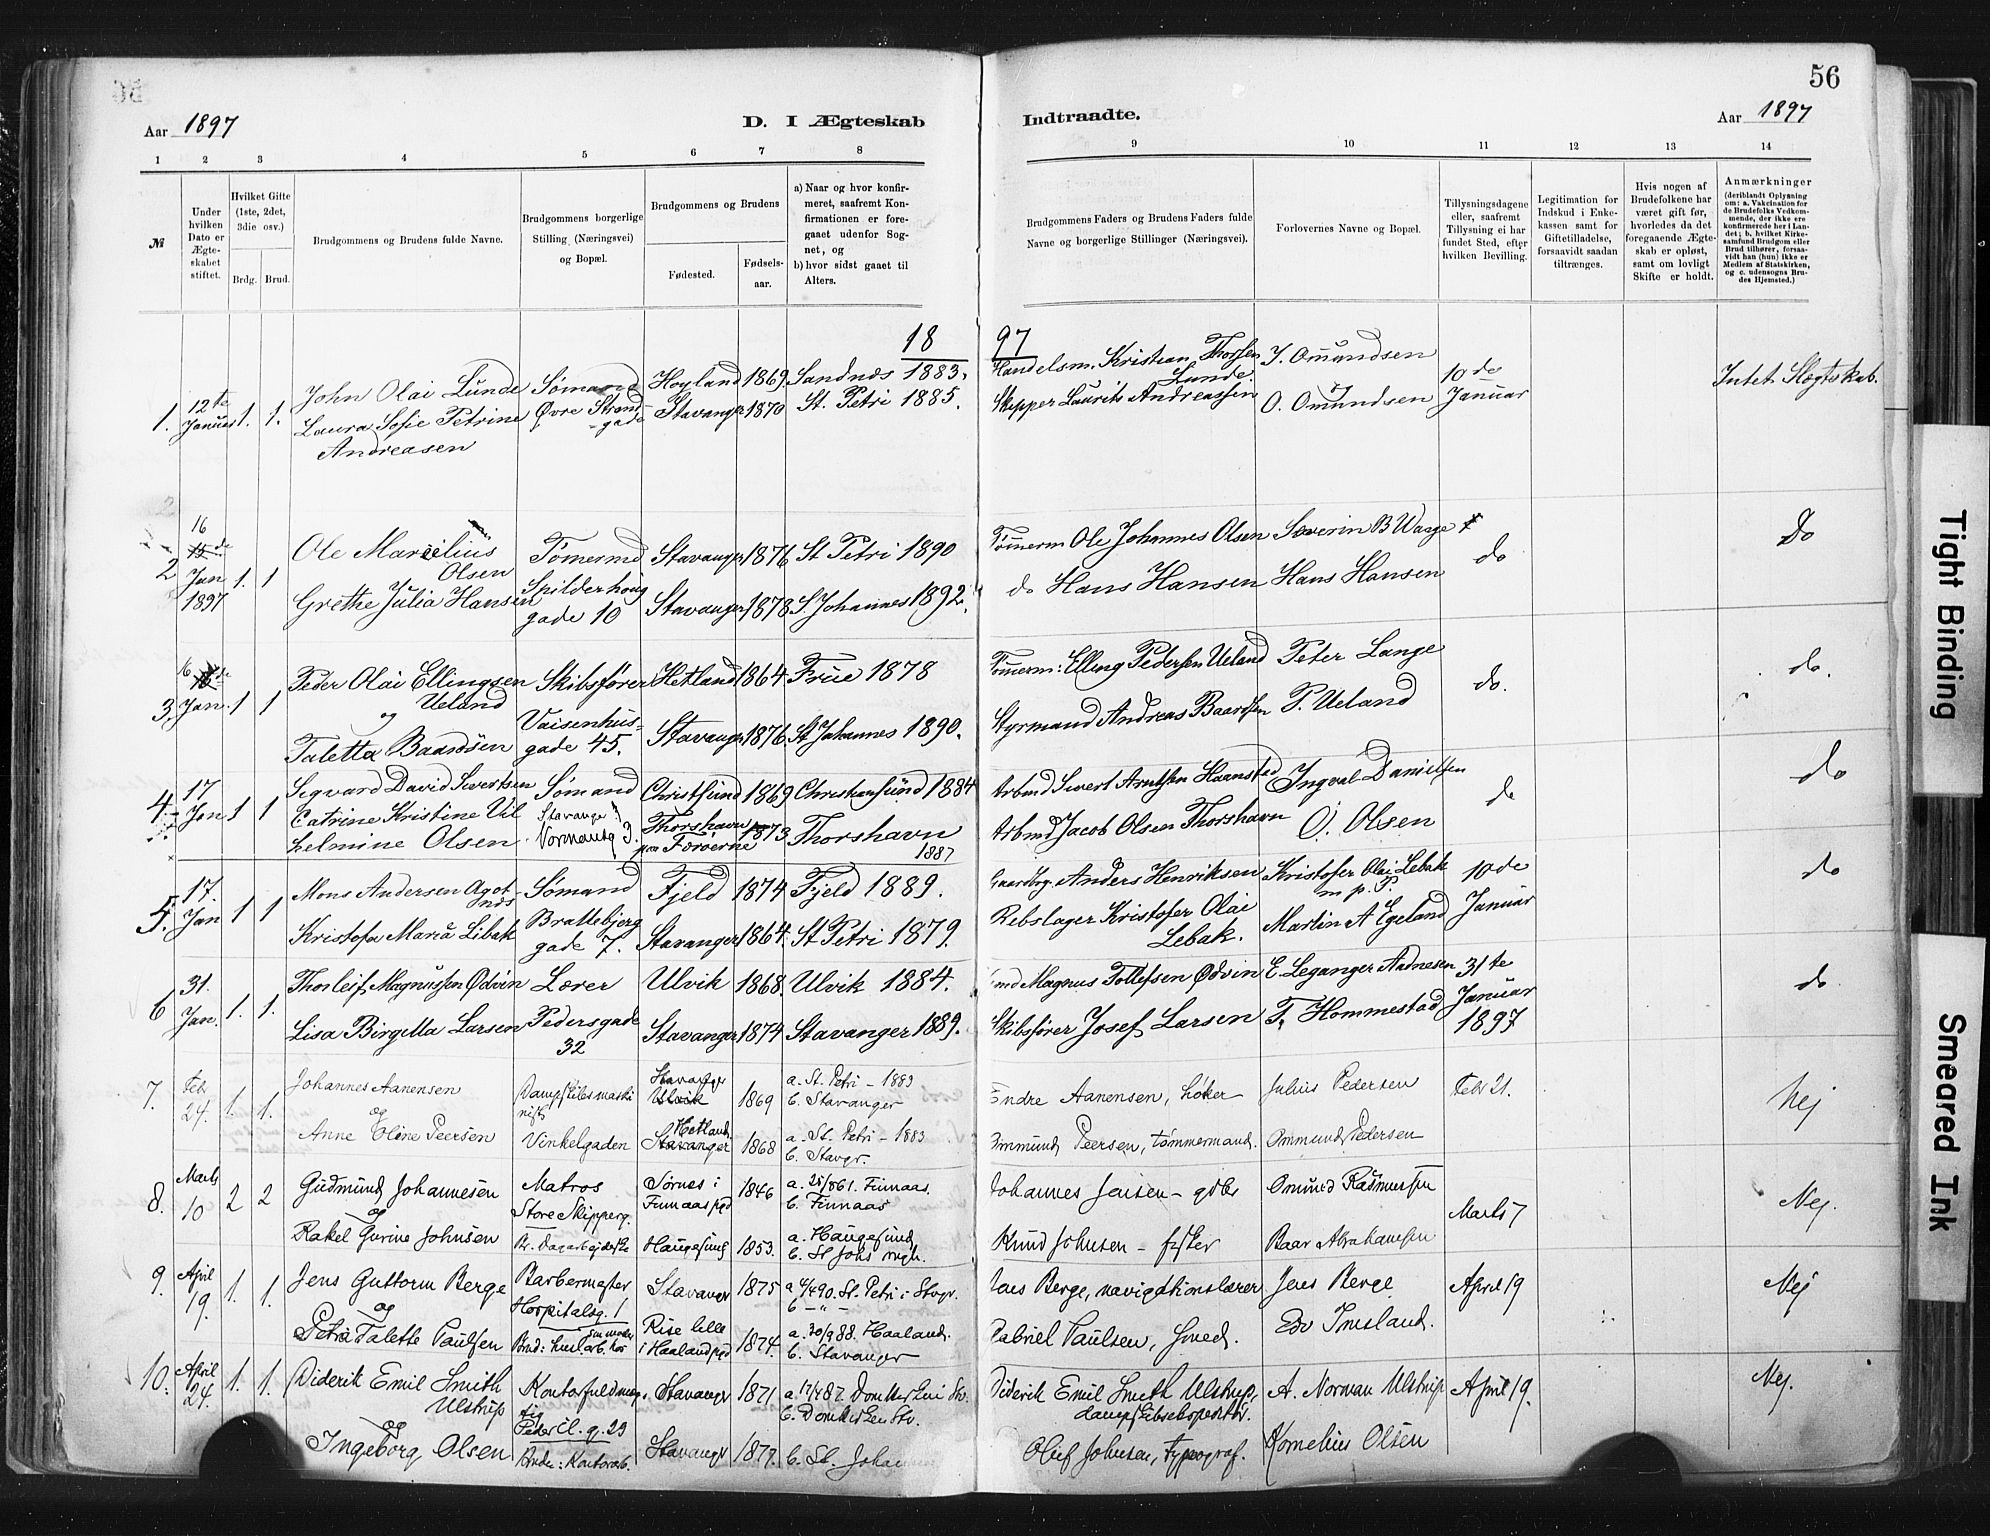 56
Aar 1897
D. I Ægteskab
Indtraadte.
Aar 1897
1 2 3 4 5 6 7 8 9 10 11 12 13 14
№
Under hvilken Dato er Ægteskabet stiftet.
Hvilket Gifte (1ste, 2det, 3die osv.)
Brdg. Brud.
Brudgommens og Brudens fulde Navne.
Brudgommens borgerlige Stilling (Næringsvei) og Bopæl.
Brudgommens og Brudens
Fødested.
Fødselsaar.
a) Naar og hvor konfirmeret, saafremt Konfirmationen er foregaaet udenfor Sognet, og
b) hvor sidst gaaet til Alters.
Brudgommens Faders og Brudens Faders fulde Navne og borgerlige Stillinger (Næringsvei).
Forlovernes Navne og Bopæl.
Tillysningsdagene eller, saafremt Tillysning ei har fundet Sted, efter hvilken Bevilling.
Legitimation for Indskud i Enkekassen samt for Giftetilladelse, forsaavidt saadan tiltrænges.
Hvis nogen af Brudefolkene har været gift før, hvorledes da det foregaaende Ægteskab er opløst, samt om lovligt Skifte er holdt.
Anmærkninger (deriblandt Oplysning om: a. Vakcination for de Brudefolks Vedkommende, der ikke ere konfirmerede her i Landet; b. hvilket Kirkesamfund Brudgom eller Brud tilhører, forsaavidt han (hun) ikke er Medlem af Statskirken, og c. udensogns Brudes Hjemsted.)
18 97
1. 12te Januar 1. 1. John Olai Lunde Sømand Hoyland 1869. Sandnæs 1883. Handelsm. Kristian Thorsen Lunde. J. Omundsen 10de Januar Intet Slægtskab.
Laura Sofie Petrine Andreasen Øvre Strandgade Stavanger 1870 St. Petri 1885. Skipper Laurits Andreassen O. Omundsen
2 16 Jan 1897 1. 1 Ole Marcelius Olsen Tømermd Stavanger 1876 St Petri 1890 Tømmerm Ole Johannes Olsen Severin B Waage do Do
Grethe Julia Hansen Spilderhouggade 10 Stavanger 1878. St Johannes 1892. do Hans Hansen Hans Hansen
3. 16 Jan. 1 1 Peder Olai Ellingsen Ueland Skibsfører Hetland 1864 Frue 1878 Tømmerm: Elling Pedersen Ueland Peter Lange do. do.
og
Taletta Baardsen Vaisenhusgade 45. Stavanger 1876. St Johannes 1890. Styrmand Andreas Baardsen P. Ueland
4 17 Jan 1 1 Sigvard David Sivertsen Sømand Christsund 1869 Christiansund 1884 Arbmd Sivert Arntsen Haansted Ingval Danielsen do do
Catrine Kristine Vilhelmine Olsen Stavanger Thorshavn Færøerne 1873 Thorshavn 1887 Arbmd Jacob Olsen Thorshavn O. Olsen
5. 17. Jan 1 1 Mons Andersen Agotnæs Sømand Fjeld 1874 Fjeld 1889. Gaardbrg. Anders Henriksen Kristofer Olai Lebak m. p. P. 10de Januar do
Kristofa Maria Libak Brattebjerggade 7. Stavanger 1864. St Petri 1879. Rebslager Kristofer Olai Lebak. Martin A Egeland
6 31. Jan. 1. 1. Thorleif Magnussen Ødvin Lærer Ulvik 1868. Ulvik 1884. Magnus Tollefsen Ødvin E. Leganger Aadnesen 31te Januar 1897 do
Lisa Birgitta Larsen Pedersgade 32 Stavanger 1874 Stavanger 1889. Skibsfører Josef Larsen T. Hommestad
7. Feb 24. 1. 1. Johannes Aanensen Dampskibsmaskinist Stavanger 1869 a. St. Petri – 1883 b. Stavanger Endre Aanensen, høker Julius Pedersen Feb 21. Nej
og
Anne Oline Peersen Vinkelgaden Hetland 1868 a. St. Petri – 1883 b. Stavgr. Ommund Peersen, tømmermand. Ommund Pedersen
8. Marts 10 2 2 Gudmund Johannesen Matros Store Skipperg. Sørnes i Finnaas pgd 1846 a. 25/5 61. Finnaas. b. Finnaas Johannes Jensen – gdbr Omund Rasmussen Marts 7 Nej.
og
Rakel Gurine Johnsen Haugesund 1853. a. Haugesund b. St Johs mgh. Knud Johnsen – fisker Baar Abrahamsen
9. April 19. 1. 1. Jens Guttorm Berge Barbermester Hospitalsg. 1 Stavangr 1875 a 4/4 90. St. Petri i Stvgr. b – " – Lars Berge, navigationslærer Jens Berge April 19 Nej
og
Petra Talette Paulsen Rise lille i Haaland pgd 1874. a. 30/9 88. Haaland. b. Stavanger Gabriel Paulsen, smed. Edv Imsland.
10. April 24. 1. 1. Diderik Emil Smith Ulstrup Kontorfuldmægtig Pedersg. 23 Stavangr 1871 a. 17/4 87. Domkirken Stv. b. Domkirken Stv. Diderik Emil Smith Ulstrup, dampskibsekspeditør. A. Norman Ulstrup April 19. Nej.
og
Ingeborg Olsen Bruden: Kontorarb. Stavangr 1877. b. St. Johan Oluf Johnsen, typograf. Kornelius Olsen
Tight Binding
Smeared Ink